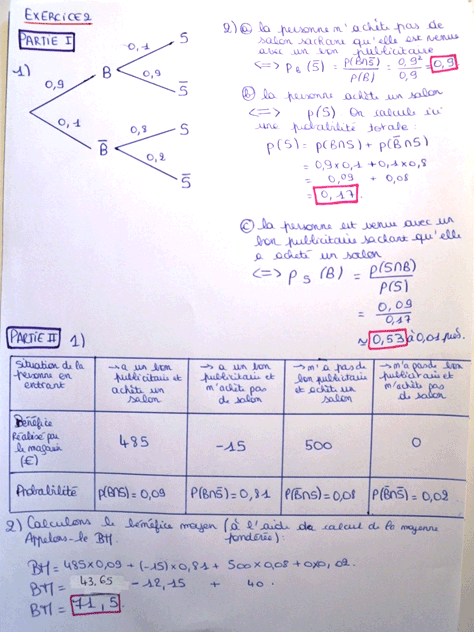 EXERCICE 2
PARTIE I
1)
0,9
B
0,1
S
0,9
S̅
0,1
B̅
0,8
S
0,2
S̅
2) a) la personne n'achète pas de
salon sachant qu'elle est venue
avec un bon publicitaire
<=> P_B(S̅) = P(B∩S̅)/P(B) = 0,9²/0,9 = 0,9
b) la personne achète un salon
<=> p(S) On calcule ici
une probabilité totale :
p(S) = p(B∩S) + p(B̅∩S)
= 0,9x0,1 + 0,1x0,8
= 0,09 + 0,08
= 0,17.
c) la personne est venue avec un
bon publicitaire sachant qu'elle
a acheté un salon
<=> p_S (B) = p(S∩B)/p(S)
= 0,09/0,17
≈ 0,53 à 0,01 près.
PARTIE II 1)
Situation de la personne en entrant
→ a un bon publicitaire et achète un salon
→ a un bon publicitaire et n'achète pas de salon
→ n'a pas de bon publicitaire et achète un salon
→ n'a pas de bon publicitaire et n'achète pas de salon
Bénéfice Réalisé par le magasin (€)
485
-15
500
0
Probabilité
p(B∩S) = 0,09
P(B∩S̅) = 0,81
p(B̅∩S) = 0,08
p(B̅∩S̅) = 0,02
2) Calculons le bénéfice moyen (à l'aide du calcul de la moyenne
Appelons-le BM. pondérée) :
BM = 485x0,09 + (-15)x0,81 + 500x0,08 + 0x0,02.
BM = 43,65 - 12,15 + 40.
BM = 71,5.